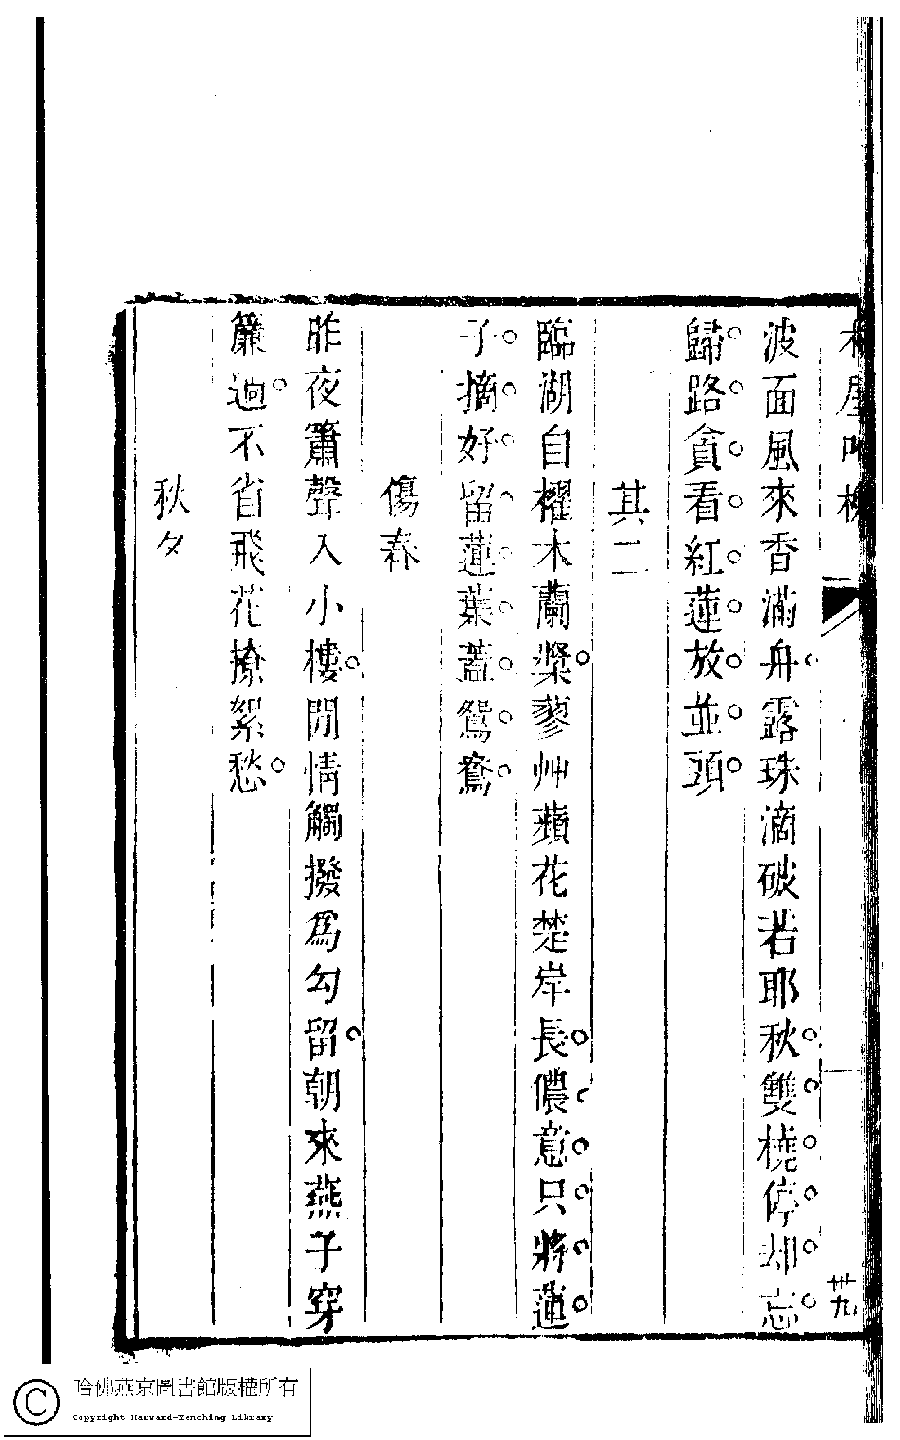 波面風來香滿舟露珠滴破若耶秋雙橈停却忘
歸路貪看紅蓮放並頭
其二
臨湖自櫂木蘭槳蓼艸蘋花楚岸長儂意只將蓮
子摘好留蓮葉蓋鴛鴦
傷春
昨夜簫聲入小樓閒情觸撥為勾留朝來燕子穿
簾過不省飛花撩絮愁
秋夕
卅九
哈佛燕京圖書館版權所有
Copyright Harvard-Yenching Library